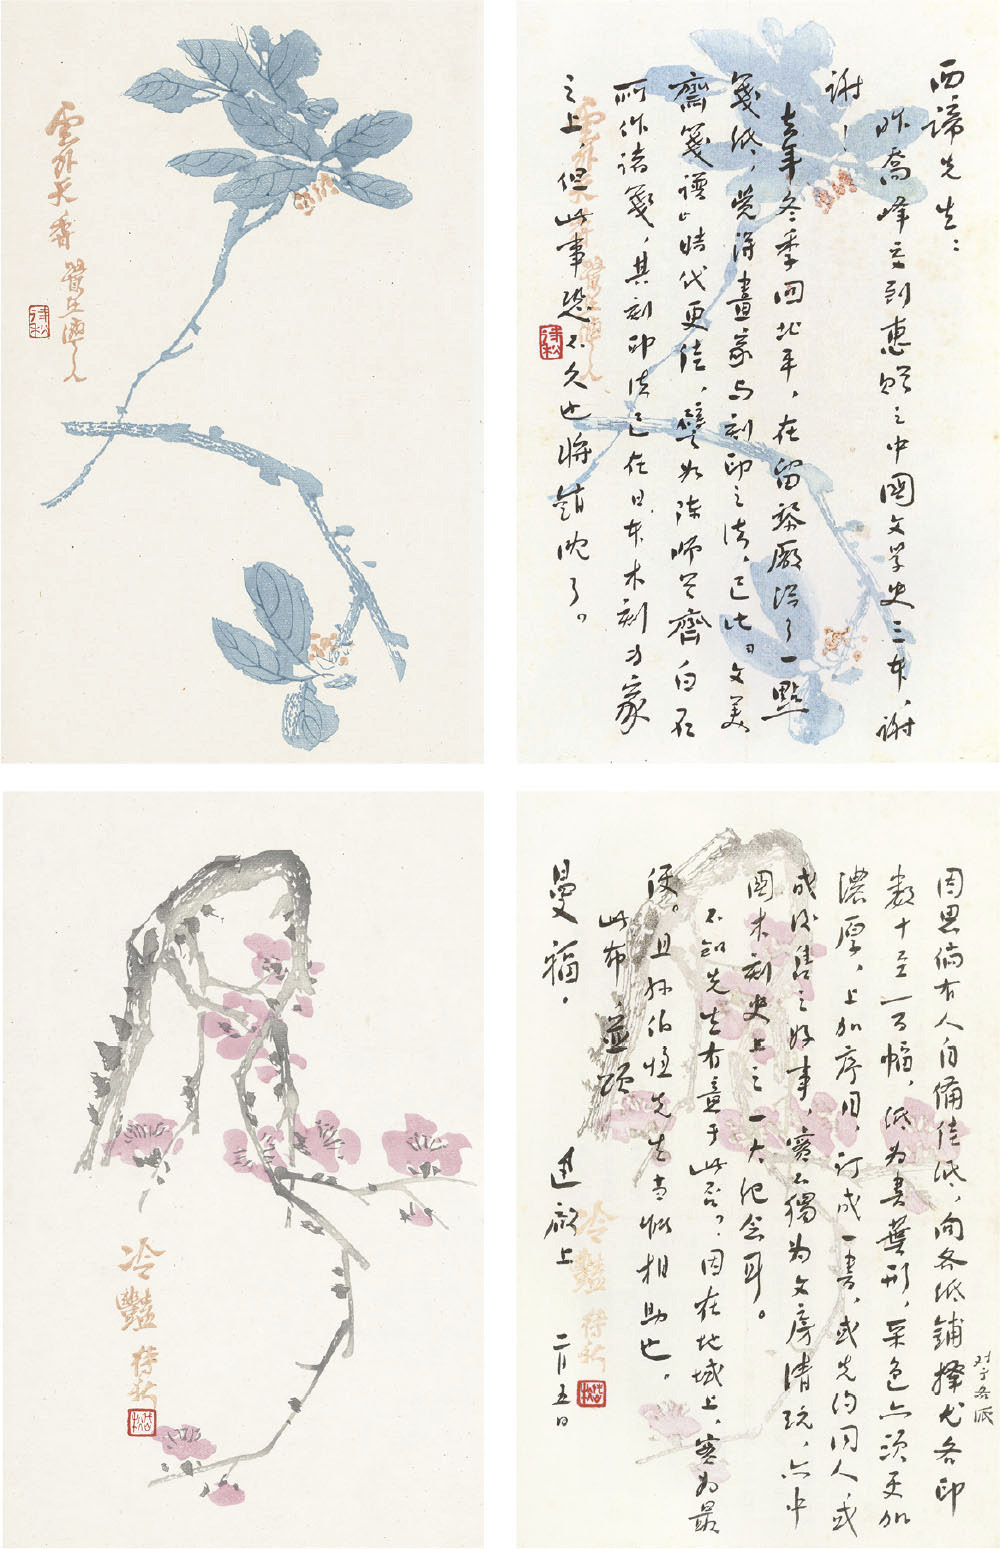 雲外天香 鷺絲灣人
西諦先生：
昨喬峰交到惠贈之中國文學史三本，謝
謝！
去年冬季回北平，在留黎廠得了一點
箋紙，覺得畫家与刻印之法，已比「文美
齋箋譜」時代更佳，譬如陳師曾齊白石
所作諸箋，其刻印法已在日本木刻専家
之上，但此事恐不久也將銷沈了。
雲外天香 鷺絲灣人
冷豔 待秋
因思倘有人自備佳紙，向各紙鋪擇尤各印
对于各派
數十至一百幅，紙为書葉形，采色亦須更加
濃厚，上加序目，訂成一書，或先約同人，或
成後售之好事，實不獨为文房清玩，亦中
國木刻史上之一大紀念耳。
不知先生有意于此否？因在地域上，實为最
便。且孙伯恆先生當能相助也。
此布，並頌
曼福。 迅啟上 二月五日
冷豔 待秋